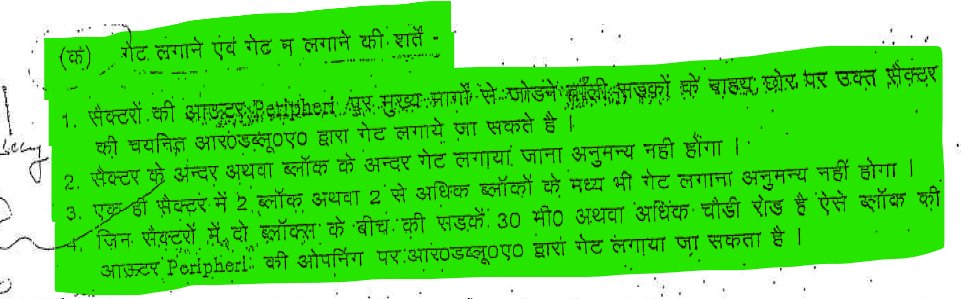 (क) गेट लगाने एवं गेट न लगाने की शर्ते -
1. सैक्टरों की आऊटर Peripheri पर मुख्य मार्गों से जोडने वाली सड़कों के बाहय छोर पर उक्त सैक्टर
की चयनित आर0डब्लू0ए0 द्वारा गेट लगाये जा सकते है ।
2. सैक्टर के अन्दर अथवा ब्लॉक के अन्दर गेट लगाया जाना अनुमन्य नही होंगा ।
3. एक ही सैक्टर में 2 ब्लॉक अथवा 2 से अधिक ब्लॉकों के मध्य भी गेट लगाना अनुमन्य नहीं होगा ।
4. जिन सैक्टरों में दो ब्लॉक्स के बीच की सडकें 30 मी0 अथवा अधिक चौडी रोड है ऐसे ब्लॉक की
आऊटर Peripheri की ओपनिंग पर आर0डब्लू0ए0 द्वारा गेट लगाया जा सकता है ।